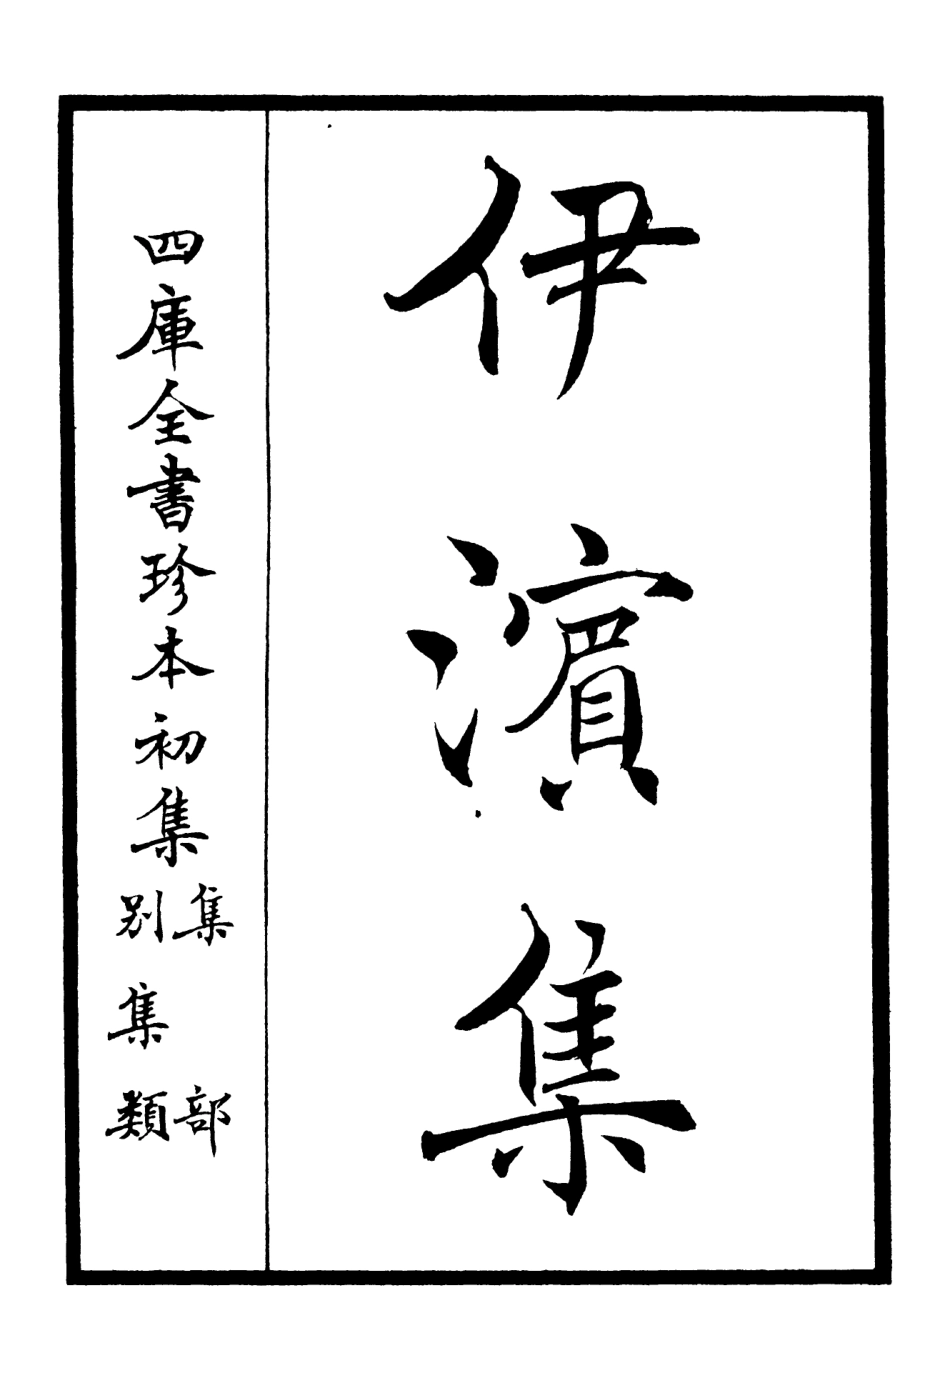 伊濱集
四庫全書珍本初集
集部
別集類